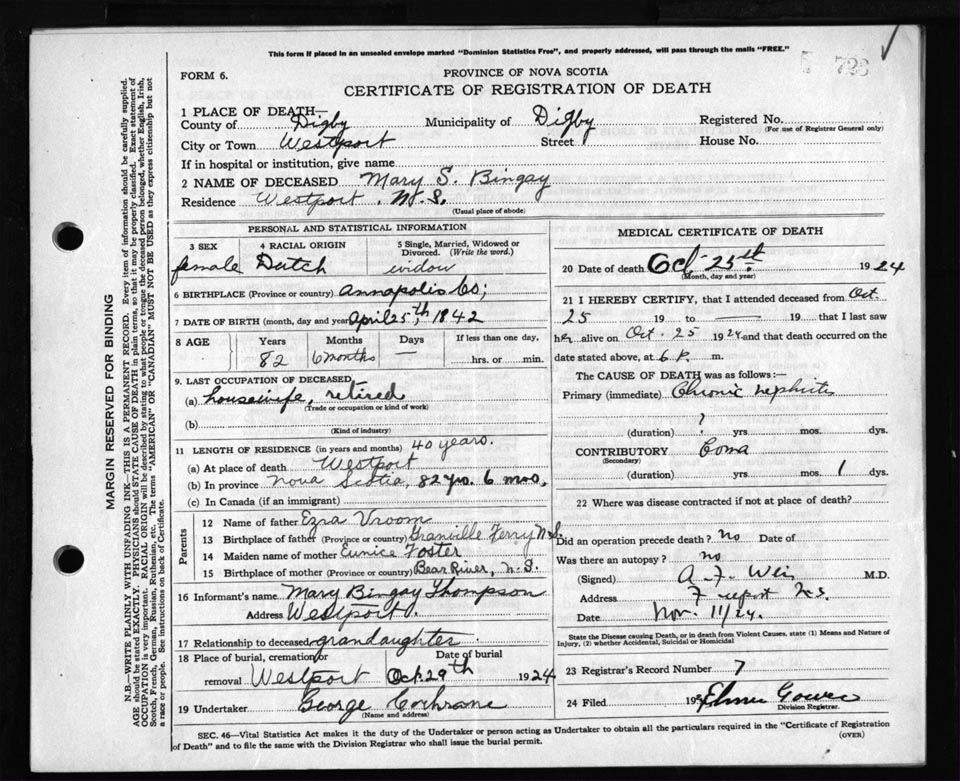 This form if placed in an unsealed envelope marked "Dominion Statistics Free", and properly addressed, will pass through the mails "FREE."
723
FORM 6.
PROVINCE OF NOVA SCOTIA
CERTIFICATE OF REGISTRATION OF DEATH
1 PLACE OF DEATH—
County of Digby Municipality of Digby Registered No.
(For use of Registrar General only)
City or Town Westport Street House No.
If in hospital or institution, give name
2 NAME OF DECEASED Mary S. Bingay
Residence Westport, N. S.
(Usual place of abode)
PERSONAL AND STATISTICAL INFORMATION
3 SEX 4 RACIAL ORIGIN 5 Single, Married, Widowed or Divorced. (Write the word.)
female Dutch widow
6 BIRTHPLACE (Province or country) Annapolis Co;
7 DATE OF BIRTH (month, day and year) April 25th, 1842
8 AGE Years Months Days If less than one day,
82 6 months — hrs. or min.
9. LAST OCCUPATION OF DECEASED
(a) housewife, retired
(Trade or occupation or kind of work)
(b)
(Kind of industry)
11 LENGTH OF RESIDENCE (in years and months) 40 years.
(a) At place of death Westport
(b) In province Nova Scotia, 82 yrs. 6 mos,
(c) In Canada (if an immigrant)
Parents
12 Name of father Ezra Vroom
13 Birthplace of father (Province or country) Granville Ferry N.S.
14 Maiden name of mother Eunice Foster
15 Birthplace of mother (Province or country) Bear River, N. S.
16 Informant's name Mary Bingay Thompson
Address Westport.
17 Relationship to deceased grandaughter
18 Place of burial, cremation or removal Westport Date of burial Oct. 29th 1924
19 Undertaker George Cochrane
(Name and address)
MEDICAL CERTIFICATE OF DEATH
20 Date of death Oct. 25th. 1924
(Month, day and year)
21 I HEREBY CERTIFY, that I attended deceased from Oct.
25 19 to — 19 that I last saw
her alive on Oct. 25 1924 and that death occurred on the
date stated above, at 6 P. m.
The CAUSE OF DEATH was as follows:—
Primary (immediate) Chronic nephritis
?
(duration) yrs. mos. dys.
CONTRIBUTORY Coma
(Secondary)
(duration) yrs. mos. 1 dys.
22 Where was disease contracted if not at place of death?
Did an operation precede death? no Date of
Was there an autopsy? no
(Signed) A. F. M.D.
Address N.S.
Date Nov. 11/24.
State the Disease causing Death, or in death from Violent Causes, state (1) Means and Nature of Injury, (2) whether Accidental, Suicidal or Homicidal
23 Registrar's Record Number 7
24 Filed 19 Elmer Gower
Division Registrar.
SEC. 46—Vital Statistics Act makes it the duty of the Undertaker or person acting as Undertaker to obtain all the particulars required in the "Certificate of Registration
of Death" and to file the same with the Division Registrar who shall issue the burial permit.
(OVER)
MARGIN RESERVED FOR BINDING
N.B.—WRITE PLAINLY WITH UNFADING INK—THIS IS A PERMANENT RECORD. Every item of information should be carefully supplied.
AGE should be stated EXACTLY. PHYSICIANS should STATE CAUSE OF DEATH in plain terms, so that it may be properly classified. Exact statement of
OCCUPATION is very important. RACIAL ORIGIN will be described by stating to what people or tongue the deceased person belonged, whether English, Irish,
Scotch, French, German, Russian, Ruthenian, etc. The terms "AMERICAN" OR "CANADIAN" MUST NOT BE USED as they express citizenship but not
a race or people. See instructions on back of Certificate.